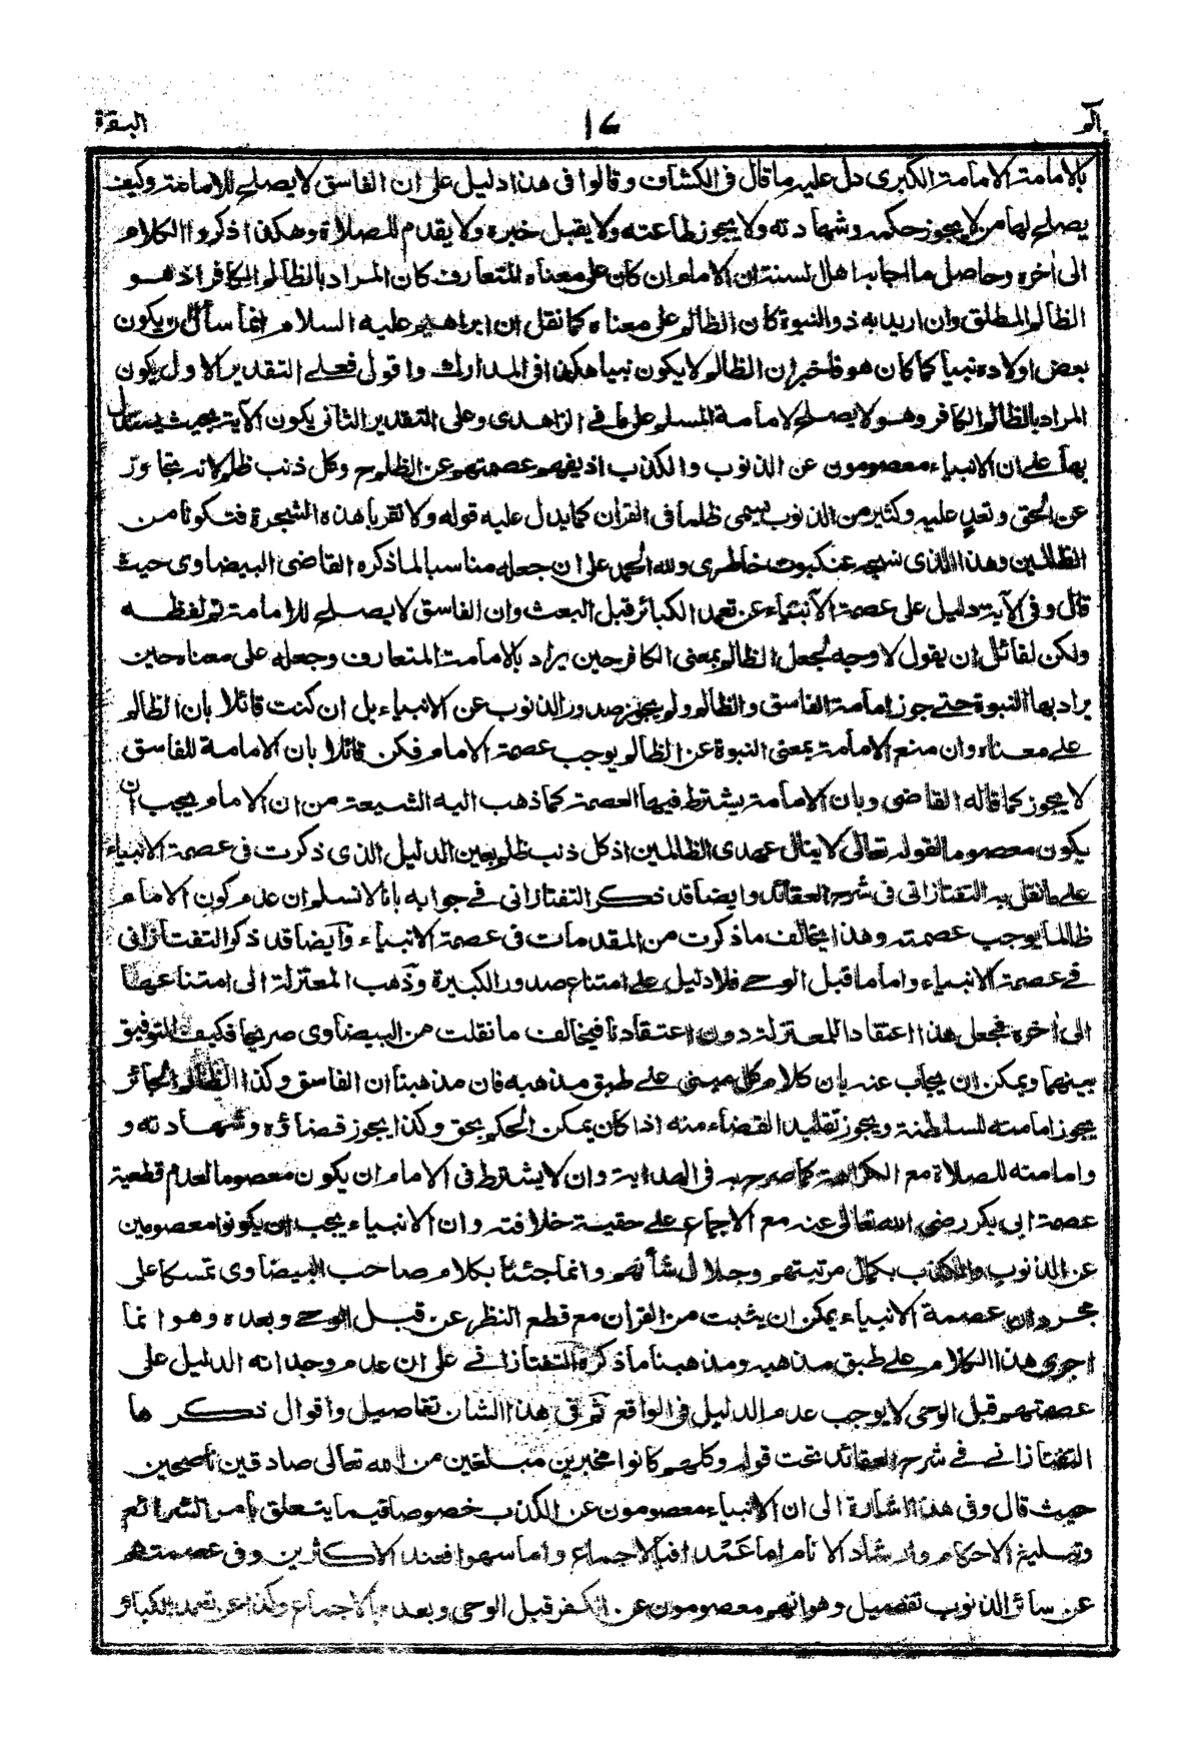 الم ١٦ البقرة
بالامامة الامامة الكبرى دل عليه ما قال فى الكشاف وقالوا فى هذا دليل على ان الفاسق لا يصلح للامامة وكيف
يصلح لها من لا يجوز حكمه وشهادته ولا يجوز طاعته ولا يقبل خبره ولا يقدم للصلاة وهكذا ذكروا الكلام
الى آخره وحاصل ما اجاب اهل السنة ان الامام ان كان على معناه المتعارف كان المراد بالظالم الكافر اذ هو
الظالم المطلق وان اريد به ذو النبوة كان الظالم على معناه كما نقل ان ابراهيم عليه السلام انما سأل ان يكون
بعض اولاده نبيا كما كان هو فاخبر ان الظالم لا يكون نبيا هكذا فى المدارك واقول فعلى التقدير الاول يكون
المراد بالظالم الكافر وهو لا يصلح لامامة المسلم على ما فى الزاهدى وعلى التقدير الثانى يكون الآية بحيث يستدل
بها على ان الانبياء معصومون عن الذنوب والكذب اذ يفهم عصمتهم عن الظلم ح وكل ذنب ظلم لانه تجاوز
عن الحق وتعد عليه وكثير من الذنوب يسمى ظلما فى القرآن كما يدل عليه قوله ولا تقربا هذه الشجرة فتكونا من
الظالمين وهذا الذى نسجه عنكبوت خاطرى ولله الحمد على ان جعله مناسبا لما ذكره القاضى البيضاوى حيث
قال وفى الآية دليل على عصمة الانبياء عن تعمد الكبائر قبل البعث وان الفاسق لا يصلح للامامة تم لفظه
ولكن لقائل ان يقول لا وجه لجعل الظالم بمعنى الكافر حين يراد بالامامة المتعارف وجعله على معناه حين
يراد بها النبوة حتى جوز امامة الفاسق والظالم ولم يجوز صدور الذنوب عن الانبياء بل ان كنت قائلا بان الظالم
على معناه وان منع الامامة بمعنى النبوة عن الظالم يوجب عصمة الامام فكن قائلا بان الامامة للفاسق
لا يجوز كما قاله القاضى وبان الامامة يشترط فيها العصمة كما ذهب اليه الشيعة من ان الامام يجب ان
يكون معصوما لقوله تعالى لا ينال عهدى الظالمين اذ كل ذنب ظلم بعين الدليل الذى ذكرت فى عصمة الانبياء
على ما نقل به التفتازانى فى شرح العقائد وايضا قد ذكر التفتازانى فى جوابه بانا لا نسلم ان عدم كون الامام
ظالما يوجب عصمته وهذا يخالف ما ذكرت من المقدمات فى عصمة الانبياء وايضا قد ذكر التفتازانى
فى عصمة الانبياء واما ما قبل الوحى فلا دليل على امتناع صدور الكبيرة وذهب المعتزلة الى امتناعها
الى آخره فجعل هذا اعتقادا للمعتزلة دون اعتقادنا فيخالف ما نقلت من البيضاوى صريحا فكيف التوفيق
بينهما ويمكن ان يجاب عنه بان كلام كل مبنى على طبق مذهبه فان مذهبنا ان الفاسق وكذا الظالم الجائر
يجوز امامته للسلطنة ويجوز تقليد القضاء منه اذا كان يمكن الحكم بحق وكذا يجوز قضاؤه وشهادته و
وامامته للصلاة مع الكراهة كما صرح به فى الهداية وان لا يشترط فى الامام ان يكون معصوما لعدم قطعية
عصمة ابى بكر رضى الله تعالى عنه مع الاجماع على حقيقة خلافته وان الانبياء يجب ان يكونوا معصومين
عن الذنوب والكذب بكمال مرتبتهم وجلال شأنهم وانما جئنا بكلام صاحب البيضاوى تمسكا على
مجرد ان عصمة الانبياء يمكن ان يثبت من القرآن مع قطع النظر عن قبل الوحى وبعده وهو انما
اجرى هذا الكلام على طبق مذهبه ومذهبنا ما ذكره التفتازانى على ان عدم وجدانه الدليل على
عصمتهم قبل الوحى لا يوجب عدم الدليل فى الواقع ثم فى هذا الشان تفاصيل واقوال ذكرها
التفتازانى فى شرح العقائد تحت قوله وكلهم كانوا مخبرين مبلغين من الله تعالى صادقين ناصحين
حيث قال وفى هذا اشارة الى ان الانبياء معصومون عن الكذب خصوصا فيما يتعلق بامر الشرائع
وتبليغ الاحكام وارشاد الانام اما عمدا فبالاجماع واما سهوا فعند الاكثرين وفى عصمتهم
عن سائر الذنوب تفصيل وهو انهم معصومون عن الكفر قبل الوحى وبعده بالاجماع وكذا عن تعمد الكبائر